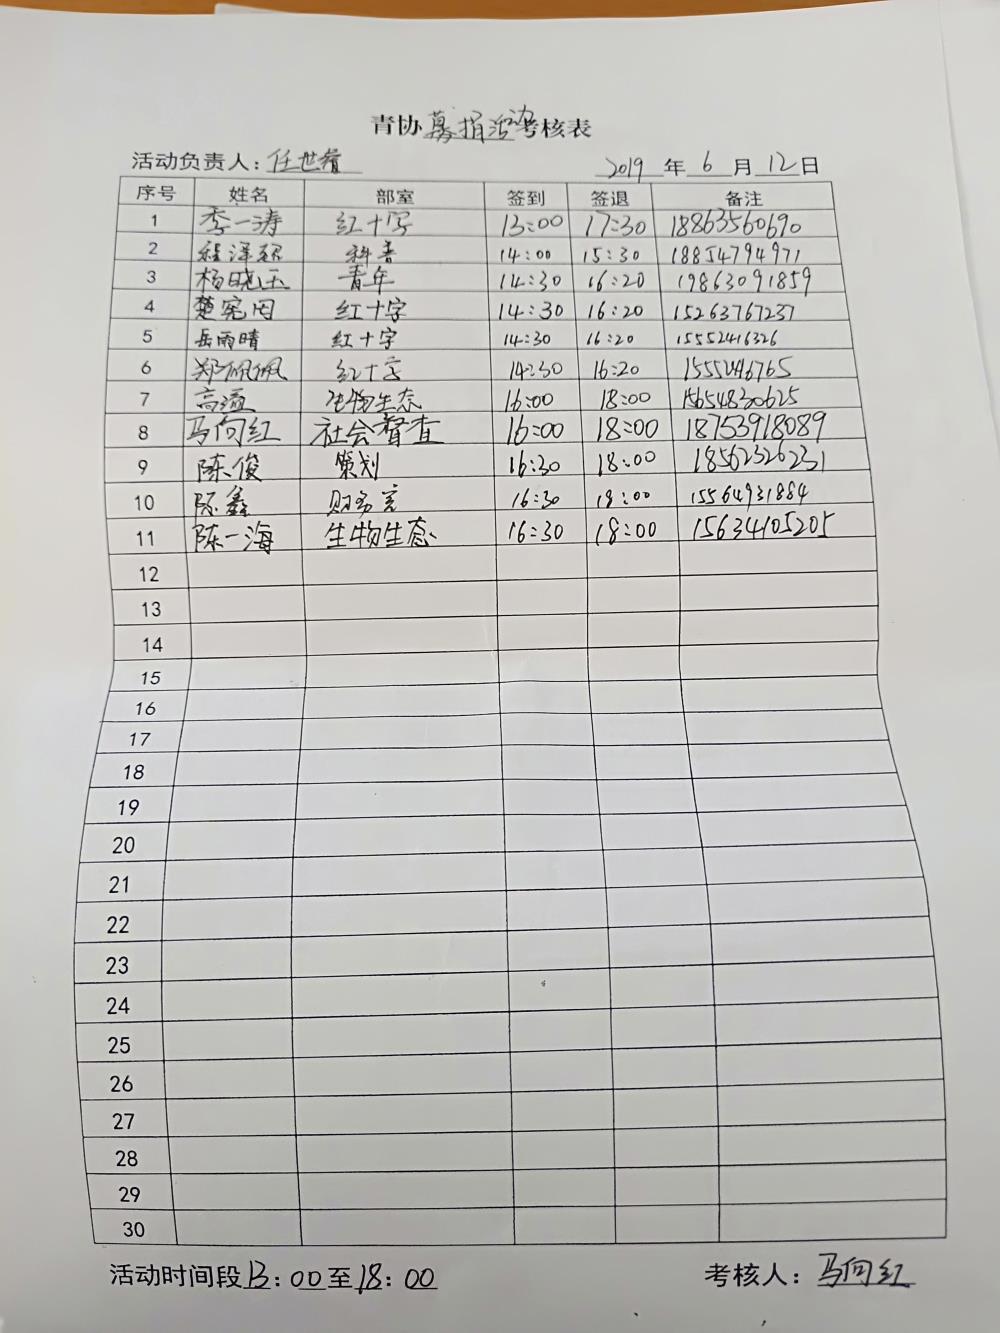 青协募捐活动考核表
活动负责人：任世睿 2019年6月12日
序号 姓名 部室 签到 签退 备注
1 李一涛 红十字 13:00 17:30 18863560690
2 程泽 科普 14:00 15:30 18854794971
3 杨晓玉 青年 14:30 16:20 19863091859
4 楚宪 红十字 14:30 16:20 15263767237
5 岳雨晴 红十字 14:30 16:20 15552416326
6 郑佩佩 红十字 14:30 16:20 15552486765
7 高 生物生态 16:00 18:00 15654830625
8 马向红 社会督查 16:00 18:00 18753918089
9 陈俊 策划 16:30 18:00 18562326231
10 陈鑫 财务室 16:30 18:00 15564931884
11 陈一海 生物生态 16:30 18:00 15634105205
12
13
14
15
16
17
18
19
20
21
22
23
24
25
26
27
28
29
30
活动时间段13:00至18:00 考核人：马向红